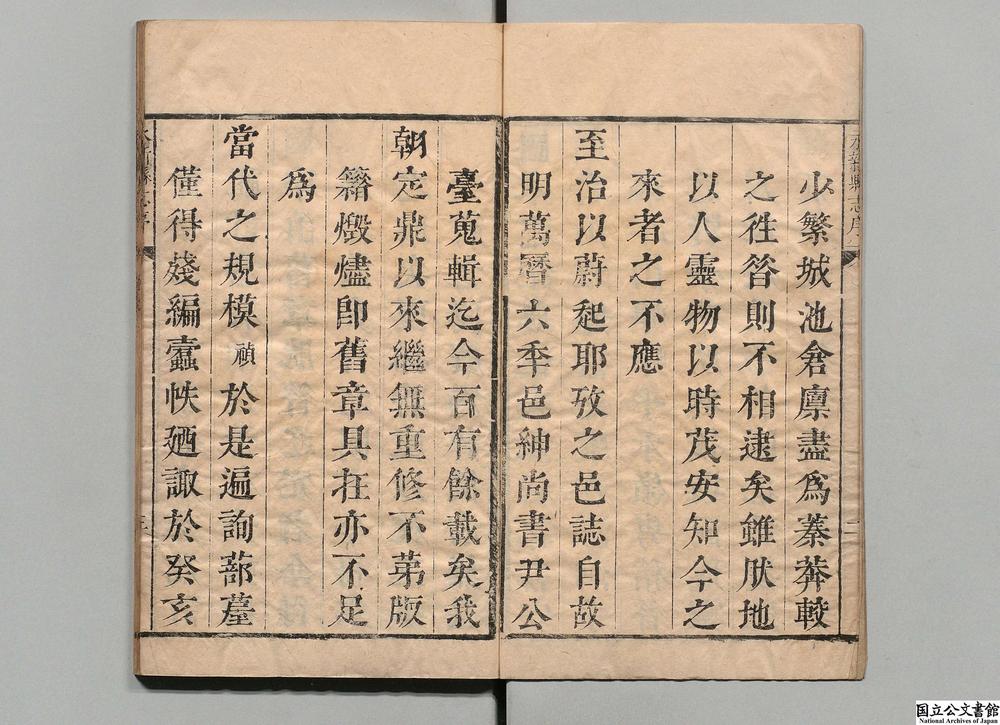 少繁城池倉廪盡為蓁莽較
之徃昝則不相逮矣雖肰地
以人靈物以時茂安知今之
來者之不應
至治以蔚起耶攷之邑誌自故
明萬曆六年邑紳尚書尹公
臺蒐輯迄今百有餘載矣我
朝定鼎以來繼無重修不苐版
籍燬燼即舊章具在亦不足
為
當代之規模 禎 於是遍詢蔀蔀
僅得殘編蠹帙廼諏於癸亥
國立公文書館
National Archives of Japan